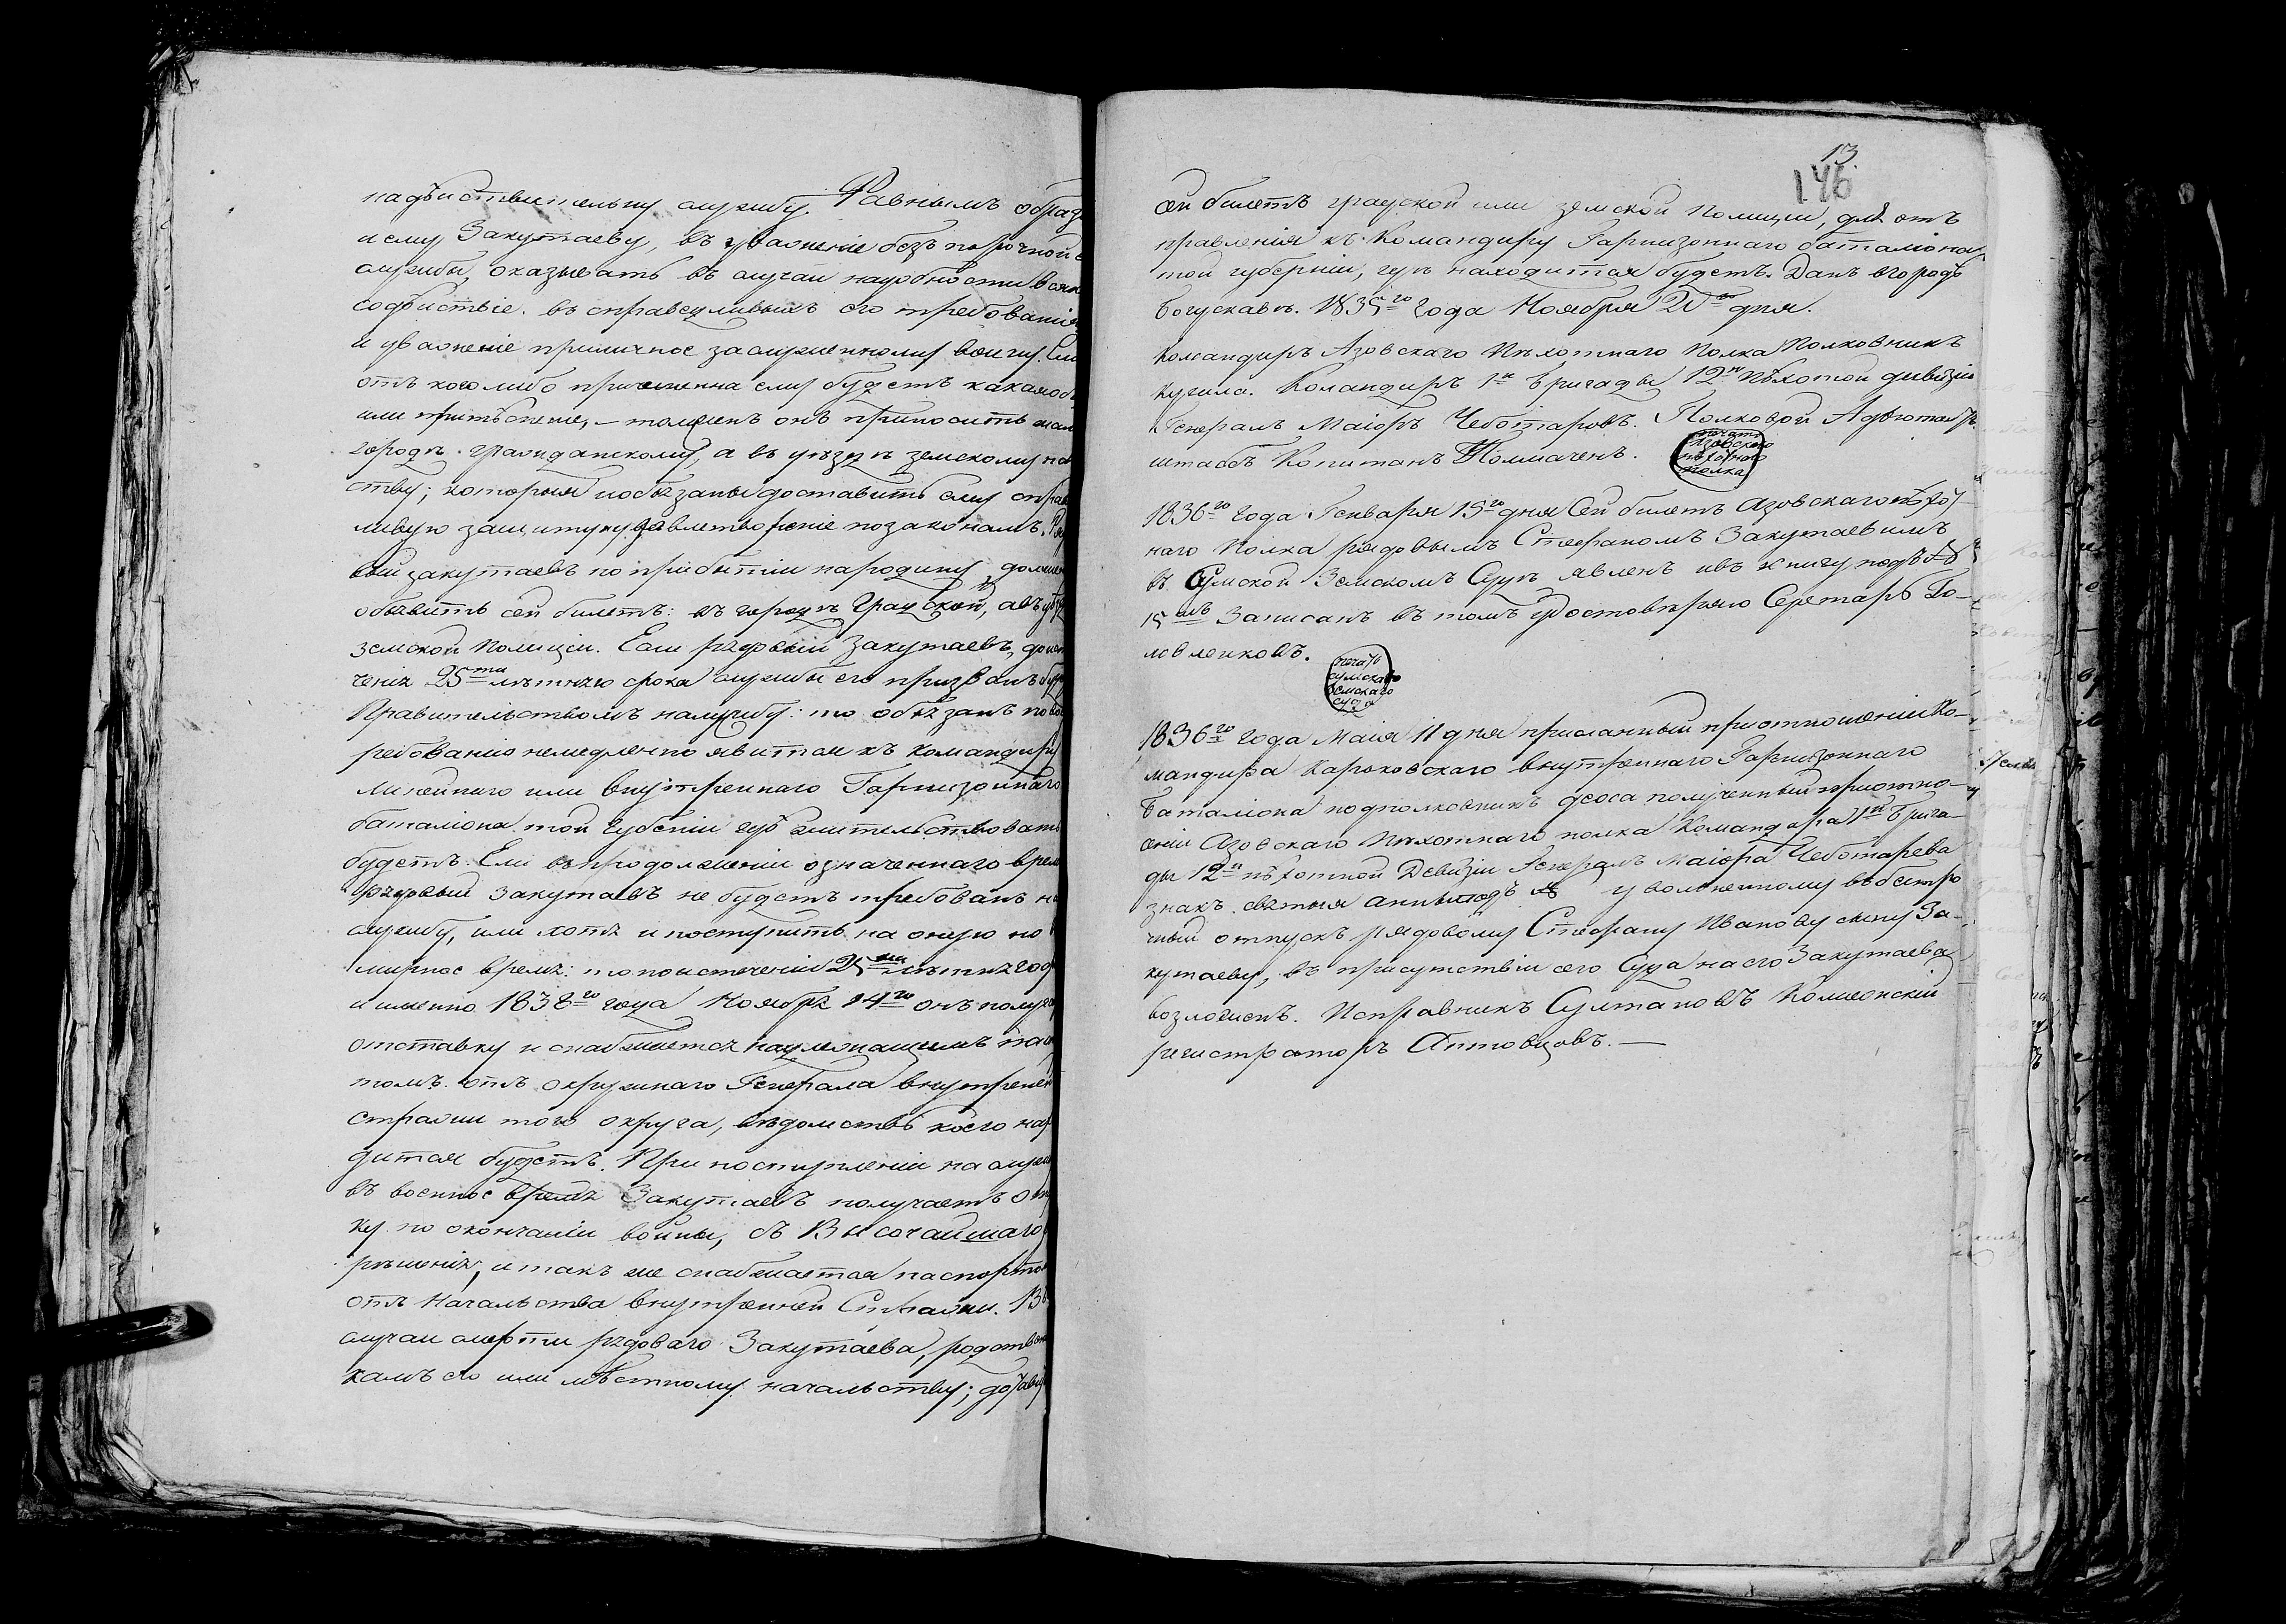 надѣиствительну службу. Равнымъ образ
и ему Закутаеву, въ уваженіе безъ порочной е
службы, оказывать въ случаи надобности всяк
содѣиствіе. въ справедливыхъ его требованія
и уваженіе приличное заслуженному воину. Ели
отъ кого либо причиненна ему будетъ какаяоб
или притѣсненіе, — толженъ онъ приносить жал
городѣ гражданскому, а въ уѣздѣ земскому на
ству; которыя иобязаны доставить ему справ
ливую защиту иудавлетвореніе позаконамъ. Ря
вый закутаевъ поприбытіи народину долже
обявить сей билетъ: въ городѣ Градской, авъ уѣз
земской полиціи. Если рядовый Закутаевъ, доис
ченія 25ти лѣтняго срока службы его призванъ буд
Правительствомъ наслужбу: то обязанъ по во
ребованію немедленно явится къ командиру
линейнаго или внутреннаго Гарнизоннаго
баталіона той Губеніи гдѣ жительствовать
будетъ. Ели въ продолженіи означеннаго врем
рядовый Закутаевъ не будетъ требованъ на
службу, или хотя и поступитъ на оную но
мирное время: то поистеченіи 25ти лѣтняхгод
и именно 1838го года Ноября 14го онъ получ
отставку и снабжается надлежащимъ пас
томъ отъ окружнаго Генерала внутрене
стражи того округа, вѣдомствѣ коего нах
дится будетъ. При поступленіи на служ
въ военное время Закутаевъ получаетъ от
ку по окончаніи войны, съ Высочайшаго
рѣшенія, и такъ же снабжается паспорто
отъ Начальства внутренней Стражи. Въ
случаи смерти рядоваго Закутаева, родствен
камъ его или мѣстному начальству; доставі
13.
146
сей билетъ градской или земской Полиціи, для отъ
правленія къ Командиру Гарнизоннаго баталіона
той губерніи, гдѣ находится будетъ. Данъ вгородѣ
Богуславѣ. 1835го года Ноября дня.
Командиръ Азовскаго Пѣхотнаго Полка Полковникъ
Командиръ 1й Бригады 12й Пѣхотой дивизіи
Генералъ Маіоръ Чеботаровъ. Полковой Адъютантъ
штабсъ Капитанъ Толмаченъ.
печать
Азовскаго
пѣхотнаго
полка
1836го года Генваря 15го дня Сей билетъ Азовскаго пѣхот-
наго Полка рядовымъ Стефаномъ Закутаевимъ
въ Сумской Земскомъ Судѣ явленъ ивъ книгу подъ №
15мъ Записанъ въ томъ удостовѣряю Серетарь Го-
ловленковъ.
печать
сумскаго
земскаго
суда
1836го года Маія 11 дня присланный приотношеніи Ко-
мандира Карьковскаго внутреннаго Гарнизоннаго
Баталіона подполковникъ полученный приотно-
шеніи Азовскаго Пѣхотнаго полка Командира 1й Брига-
ды 12й пѣхотной Девизіи Генералъ Маіора Чеботарева
знакъ святыя анныподъ № уволненному въбезсро
чный отпускъ рядовому Стефану Иванову сыну За-
кутаеву, въ присутствіи сего Суда на его Закутаева
возложенъ. Исправникъ Султановъ
регистраторъ Антовцовъ. —